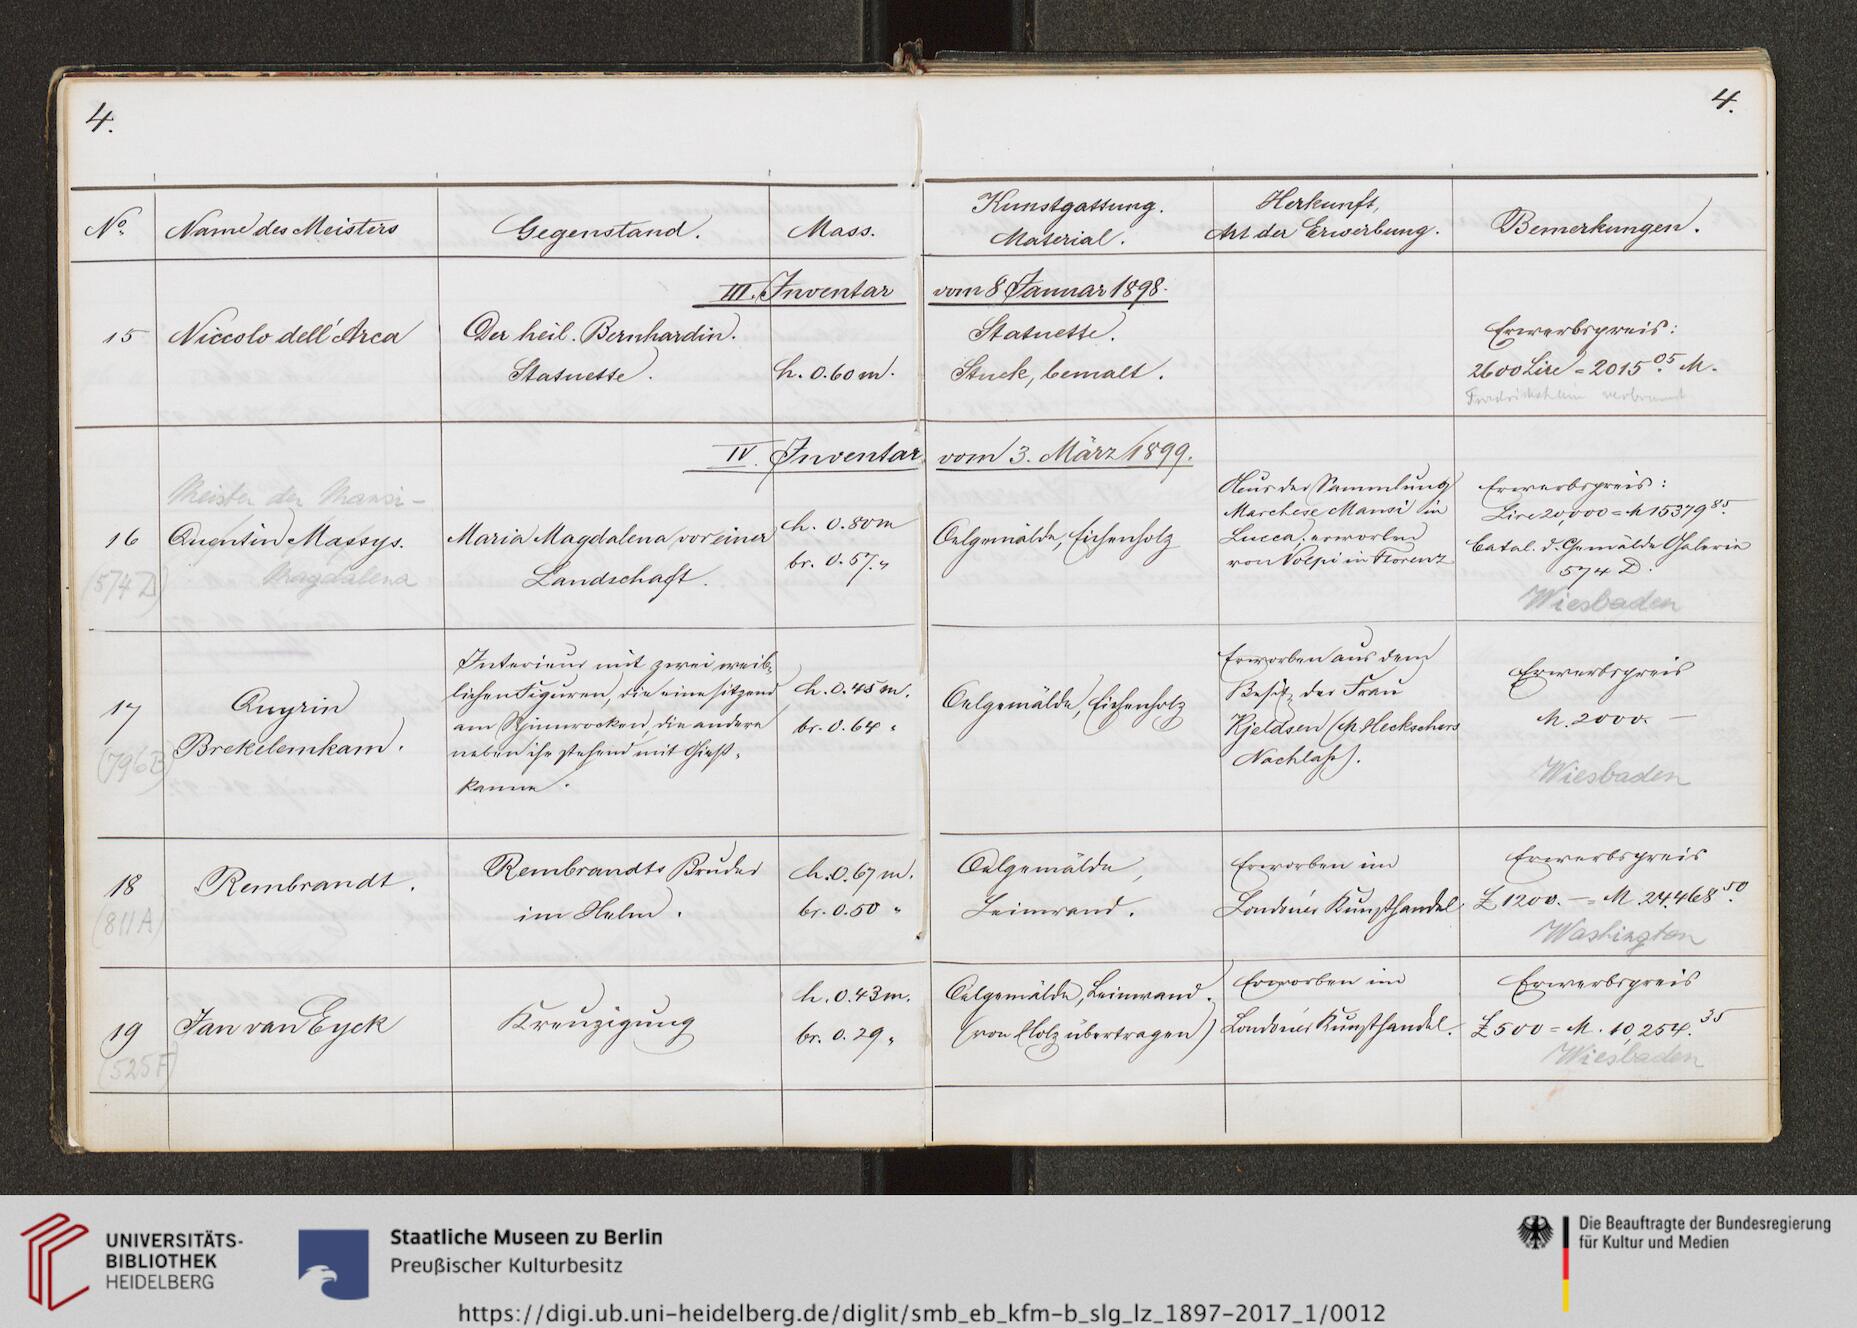 4.
4.
No. Name des Meisters Gegenstand. Mass. Kunstgattung. Material. Herkunft, Art der Erwerbung. Bemerkungen.
III. Inventar vom 8 Januar 1898.
15 Niccolo dell'Arca
Der heil. Bernhardin.
Statuette.
h. 0.60 m.
Statuette.
Stuck, bemalt.
Erwerbspreis:
2600 Lire = 2015.05 M.
Friedrichshain verbrannt
IV. Inventar vom 3. März 1899.
Meister der Mansi-
16 Quentin Massys.
Magdalena
(574 D)
Maria Magdalena vor einer
Landschaft.
h. 0.80 m
br. 0.57. "
Oelgemälde, Eichenholz
Aus der Sammlung
Marchese Mansi in
Lucca, erworben
von Volpi in Florenz
Erwerbspreis:
Lire 20,000 = M 15379 85.
Catal. d. Gemälde Galerie
574 D.
Wiesbaden
17 Quyrin
Brekelemkam.
(796 B)
Interieur mit zwei weib-
lichen Figuren, die eine sitzend
am Spinnrocken, die andere
neben ihr stehend mit Gieß-
kanne.
h. 0.45 m.
br. 0.64 "
Oelgemälde, Eichenholz
Erworben aus dem
Besitz der Frau
Kjeldsen (M. Heckschers
Nachlaß).
Erwerbspreis
M. 2000. —
Wiesbaden
18 Rembrandt.
(811 A)
Rembrandts Bruder
im Helm.
h. 0.67 m.
br. 0.50 "
Oelgemälde,
Leinwand.
Erworben im
Londoner Kunsthandel.
Erwerbspreis
£ 1200. — = M. 24.468 50.
Washington
19 Jan van Eyck
(525 F)
Kreuzigung
h. 0.43 m.
br. 0.29 "
Oelgemälde, Leinwand.
(von Holz übertragen)
Erworben im
Londoner Kunsthandel.
Erwerbspreis
£ 500 = M. 10,254. 35
Wiesbaden
UNIVERSITÄTS-
BIBLIOTHEK
HEIDELBERG
Staatliche Museen zu Berlin
Preußischer Kulturbesitz
Die Beauftragte der Bundesregierung
für Kultur und Medien
https://digi.ub.uni-heidelberg.de/diglit/smb_eb_kfm-b_slg_lz_1897-2017_1/0012